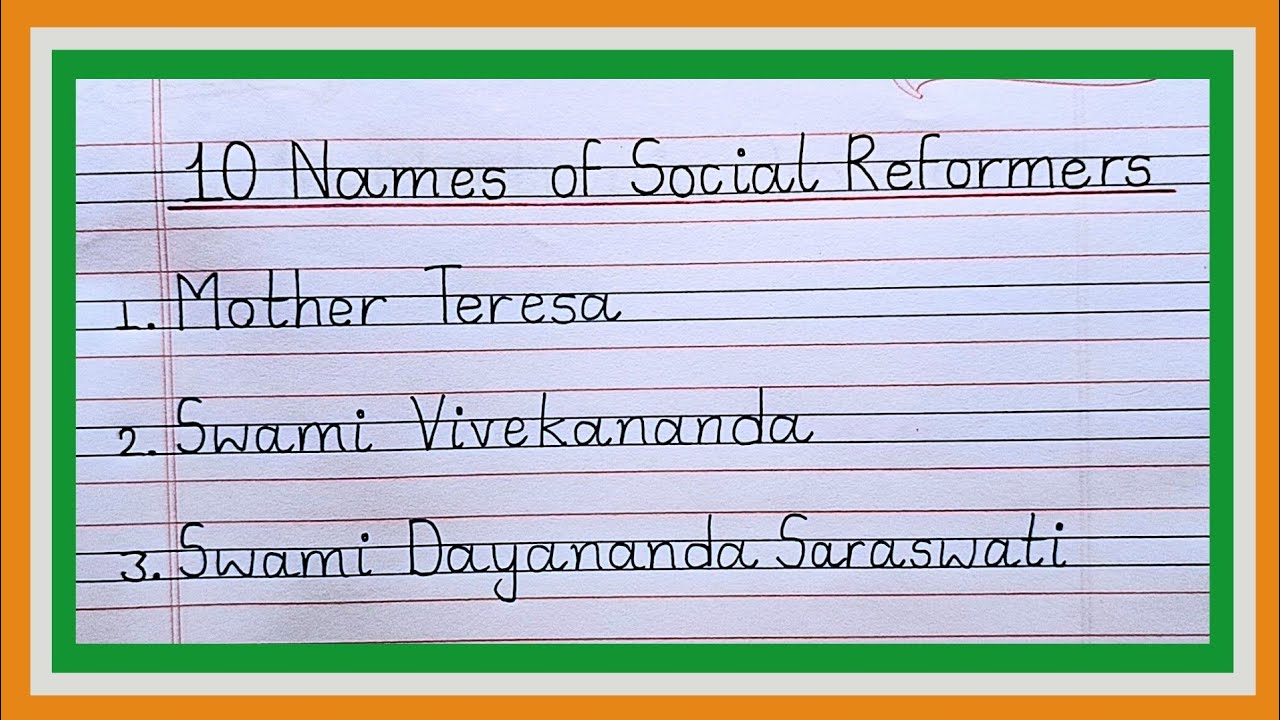 10 Names of Social Reformers
1. Mother Teresa
2. Swami Vivekananda
3. Swami Dayananda Saraswati